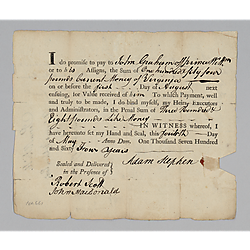 I do promise to pay to John Graham of Prince Wm
or to his Assigns, the Sum of One hundred fifty four
pounds Current Money of Virginia
on or before the first Day of August next
ensuing, for Value received of him To which Payment, well
and truly to be made, I do bind myself, my Heirs, Executors
and Administrators, in the Penal Sum of Three hundred &
Eight pounds Like Money
IN WITNESS whereof, I
have hereunto set my Hand and Seal, this fourth Day
of May Anno Dom. One Thousand Seven Hundred
and Sixty Four Years
Adam Stephen
Sealed and Delivered
in the Presence of
Robert Scott
John Macdonald